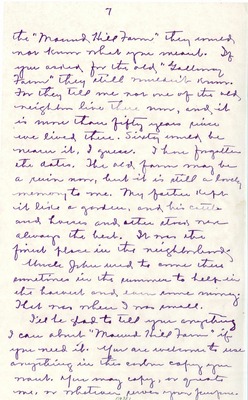 7
the "Mound Hill Farm" they would
not know what you meant. If
you asked for the old "Galloway
Farm" they still wouldn't know.
For they tell me not one of the old
neighbors live there now, and it
is more than fifty years since
we lived there. Sixty would be
nearer it, I guess. I have forgotten
the dates. The old farm may be
a ruin now, but it is still a lovely
memory to me. My father kept
it like a garden, and his cattle
and horses and other stock were
always the best. It was the
finest place in the neighborhood.
Uncle John used to come there
sometimes in the summer to help in
the harvest and earn some money.
That was when I was small.
I'll be glad to tell you anything
I can about "Mound Hill Farm" if
you need it. You are welcome to use
anything in the carbon copy you
want. You may copy, or quote
me, or whatever serves your purpose.